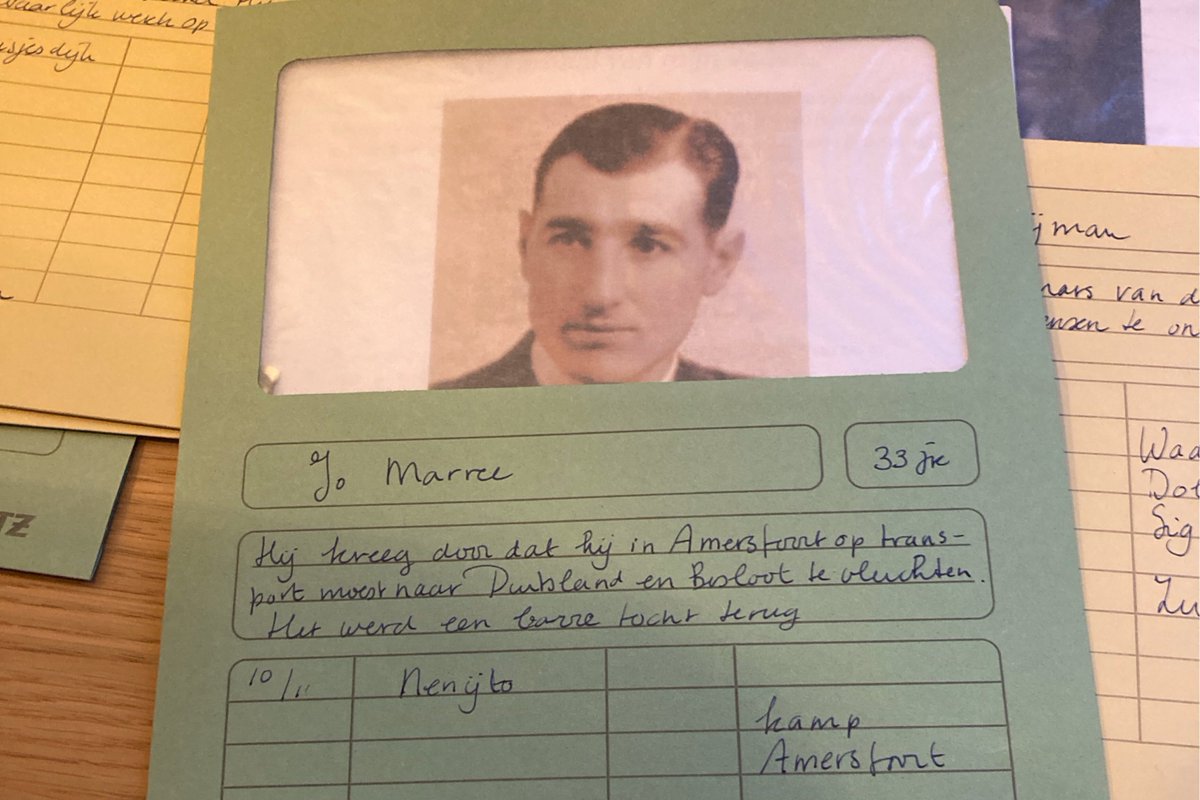 werk op
Jo Marree
33 jr
Hij kreeg door dat hij in Amersfoort op trans-
port moest naar Duitsland en besloot te vluchten.
Het werd een barre tocht terug
10/11 Nenijto
kamp
Amersfoort
TZ
jman
van d
ensen te on
Waa
Dot
Sig
Zu